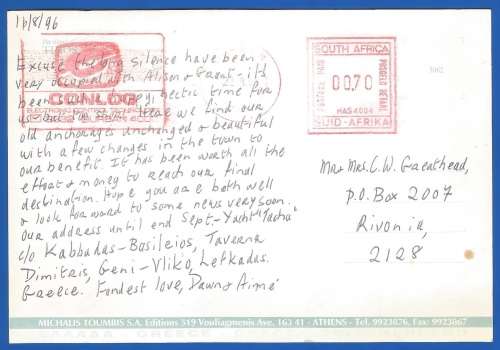 16/8/96
Excuse the long silence have been
very occupied with Alison & Grant - it's
been such a very hectic time for
us - but
here we find our
old anchorages unchanged & beautiful
with a few changes in the town to
our benefit. It has been worth all the
effort & money to reach our final
destination. Hope you are both well
& look forward to some news very soon.
Our address until end Sept - Yacht "Tacha"
c/o Kabbadas - Bosileios, Taverna
Dimitris, Geni - Vliko, Lefkadas.
Greece. Fondest love, Dawn & Aimé
CONLOG
SOUTH AFRICA
00,70
POSGELD BETAAL
POSTAGE PAID
HAS 4004
SUID-AFRIKA
Mr & Mrs C.W. Greathead,
P.O. Box 2007
Rivonia,
2128
MICHALIS TOUMBIS S.A. Editions 519 Vouliagmenis Ave. 163 41 - ATHENS - Tel. 9923876, Fax: 9923867
GREECE